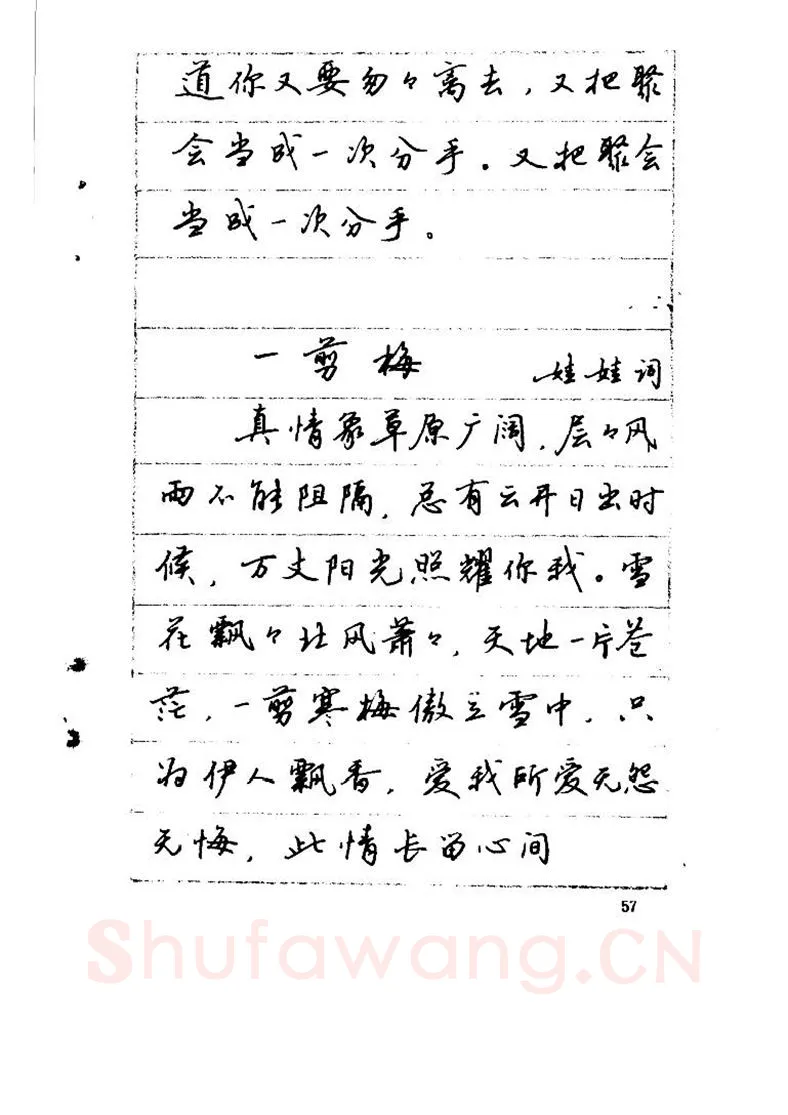 道你又要匆々离去，又把聚
会当成一次分手。又把聚会
当成一次分手。
一剪梅
娃娃词
真情象草原广阔，层々风
雨不能阻隔，总有云开日出时
候，万丈阳光照耀你我。雪
花飘々北风萧々，天地一片苍
茫，一剪寒梅傲立雪中，只
为伊人飘香，爱我所爱无怨
无悔，此情长留心间
57
Shufawang.CN